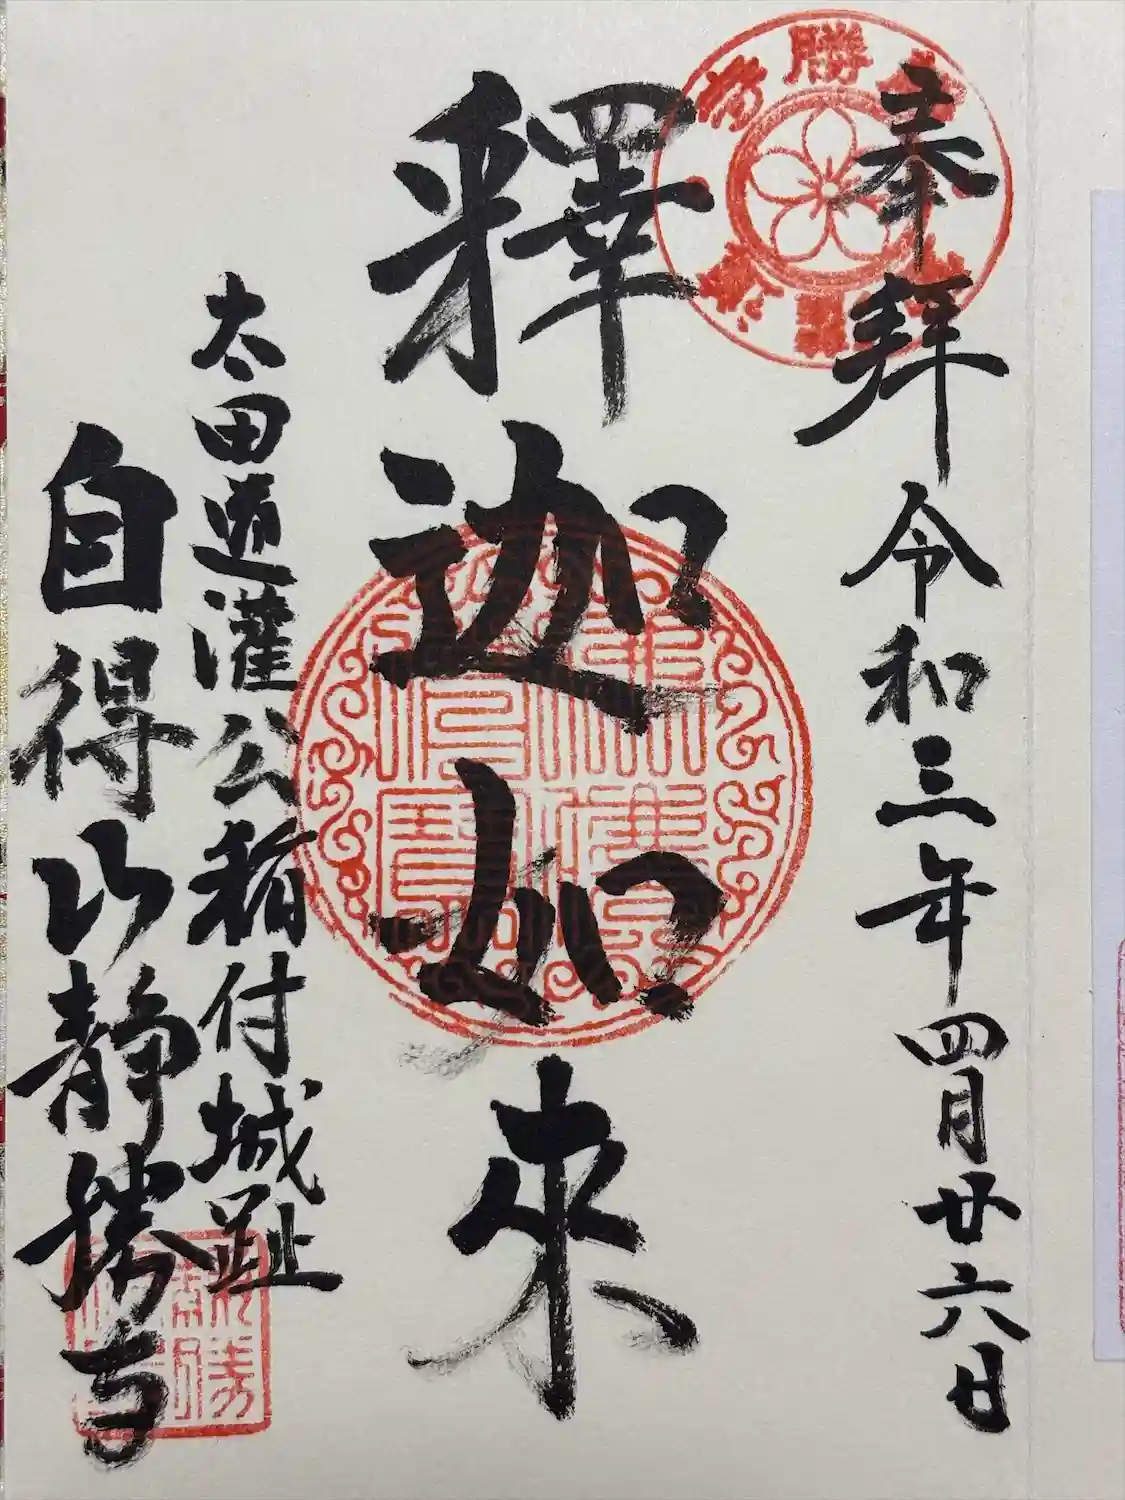 奉拝 令和三年四月廿六日
釋迦如來
太田道灌公稲付城址
自得山静勝寺